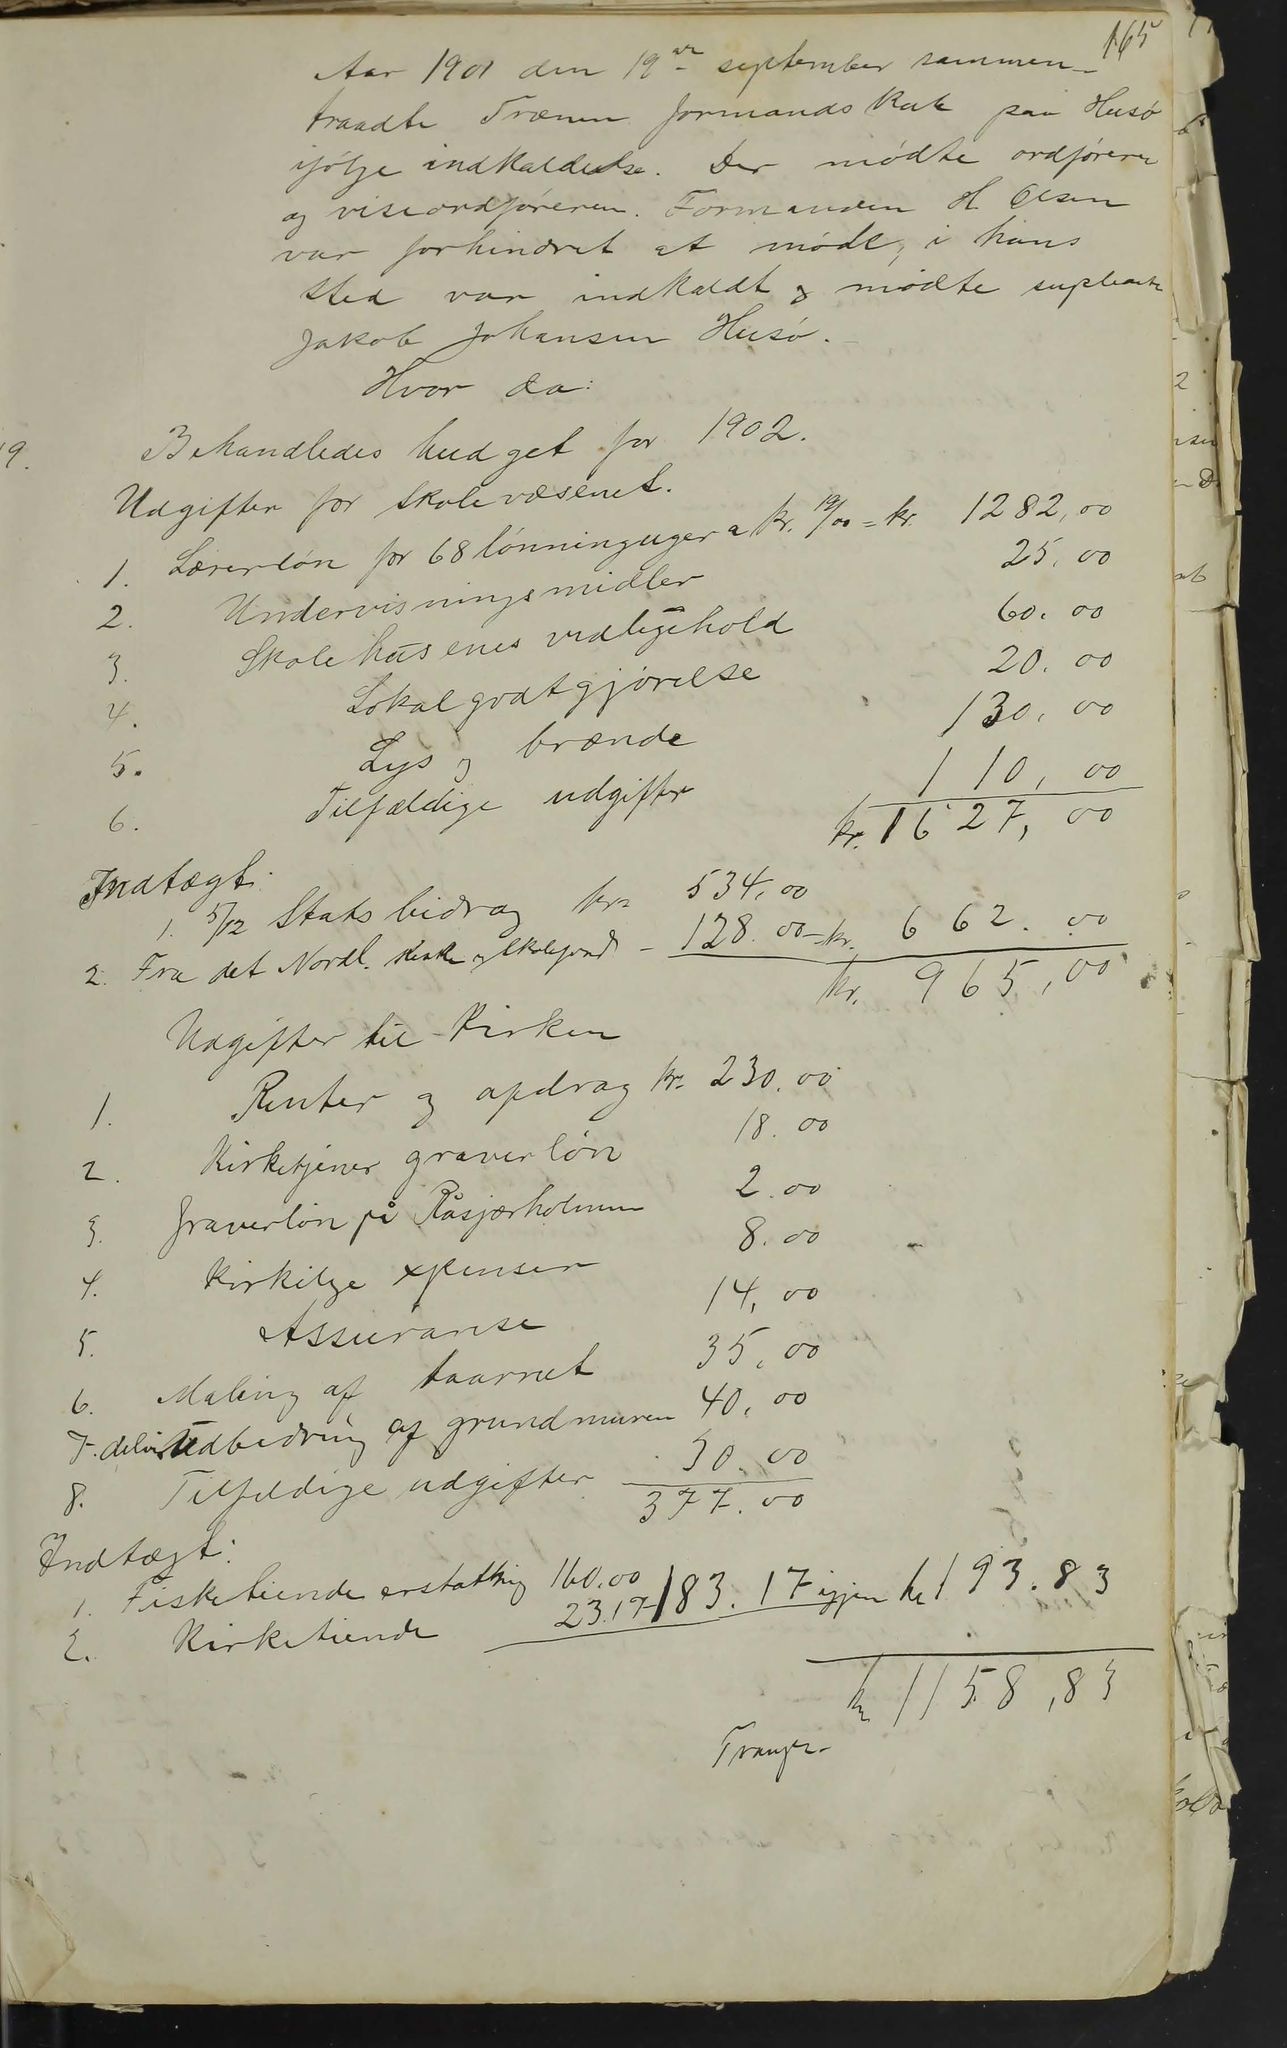 165
Aar 1901 den 19de september sammen-
traadte Trænen formandskab paa Husø
ifølge indkaldelse. Der mødte ordføreren
og viseordføreren. Formanden H Olsen
var forhindret at møde, i hans
sted var indkaldt og mødte supleant
Jakob Johansen Husø.
Hvor da:
9. Behandledes budget for 1902.
Udgifter for skolevæsenet.
1. Lærerløn for 68 lønninguger a kr. 19/00 = kr. 1282,00
2. Undervisningsmidler 25.00
3. Skolehusenes vedligehold 60.00
4. Lokalgodtgjørelse 20.00
5. Lys og brænde 130.00
6. Tilfældige udgifter 110,00
kr. 1627,00
Indtægt:
1. 5/12 Statsbidrag kr. 534.00
2. Fra det Nordl. Kirke og Skolefond - 128.00 - kr. 662.00
kr. 965,00
Udgifter til Kirken
1. Renter og apdrag kr. 230.00
2. Kirketjener graverløn 18.00
3. Graverløn på Råsjærholmen 2.00
4. Kirkelige xpenser 8.00
5. Assuranse 14,00
6. Maling af taarnet 35,00
7. delvis Udbedring af grundmuren 40,00
8. Tilfeldige udgifter 30.00
377.00
Indtægt:
1. Fisketiende erstattnig 160.00
2. Kirketiende 23.17 183.17 igjen kr 193.83
kr 1158,83
Transp.